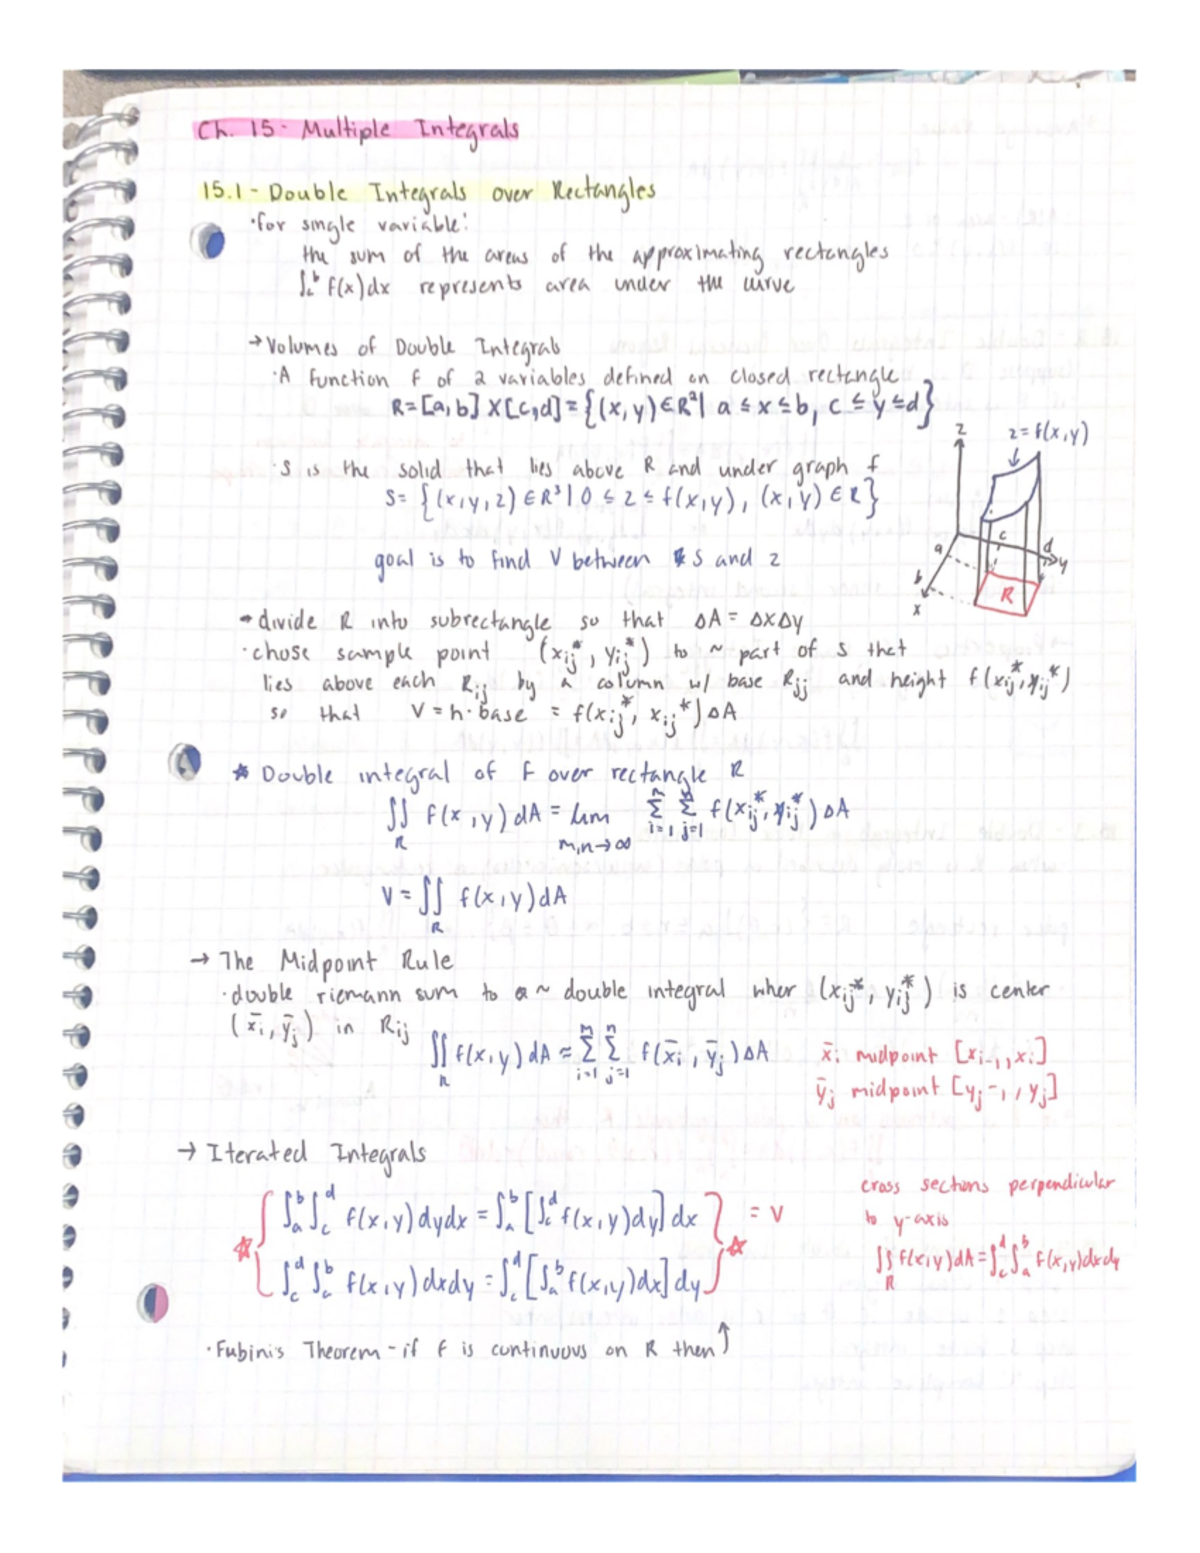 Ch. 15 - Multiple Integrals
15.1 - Double Integrals over Rectangles
·for single variable:
the sum of the areas of the approximating rectangles
∫ₐᵇ f(x)dx represents area under the curve
→ Volumes of Double Integrals
·A function f of 2 variables defined on closed rectangle
R=[a,b]X[c,d]={(x,y)∈R²| a≤x≤b, c≤y≤d}
·S is the solid that lies above R and under graph f
S= {(x,y,z)∈R³| 0≤z≤f(x,y), (x,y)∈R}
z
z=f(x,y)
a
c
d
y
b
x
R
goal is to find V between S and z
→ divide R into subrectangle so that ΔA = ΔxΔy
·chose sample point (xij*, yij*) to ~ part of S that
lies above each Rij by a column w/ base Rij and height f(xij*, yij*)
so that V = h·base = f(xij*, xij*)ΔA
★ Double integral of f over rectangle R
∬_R f(x,y)dA = lim_{m,n→∞} Σ_{i=1}^{m} Σ_{j=1}^{n} f(xij*, yij*)ΔA
V = ∬_R f(x,y)dA
→ The Midpoint Rule
·double riemann sum to a ~ double integral wher (xij*, yij*) is center
(x̄i, ȳj) in Rij
∬_R f(x,y)dA ≈ Σ_{i=1}^{m} Σ_{j=1}^{n} f(x̄i, ȳj)ΔA
x̄i midpoint [xi-1, xi]
ȳj midpoint [yj-1, yj]
→ Iterated Integrals
∫ₐᵇ∫_c^d f(x,y)dydx = ∫ₐᵇ[∫_c^d f(x,y)dy]dx = V
∫_c^d∫ₐᵇ f(x,y)dxdy = ∫_c^d[∫ₐᵇ f(x,y)dx]dy
cross sections perpendicular
to y-axis
∬_R f(x,y)dA = ∫_c^d∫ₐᵇ f(x,y)dxdy
·Fubini's Theorem - if f is continuous on R then ↑